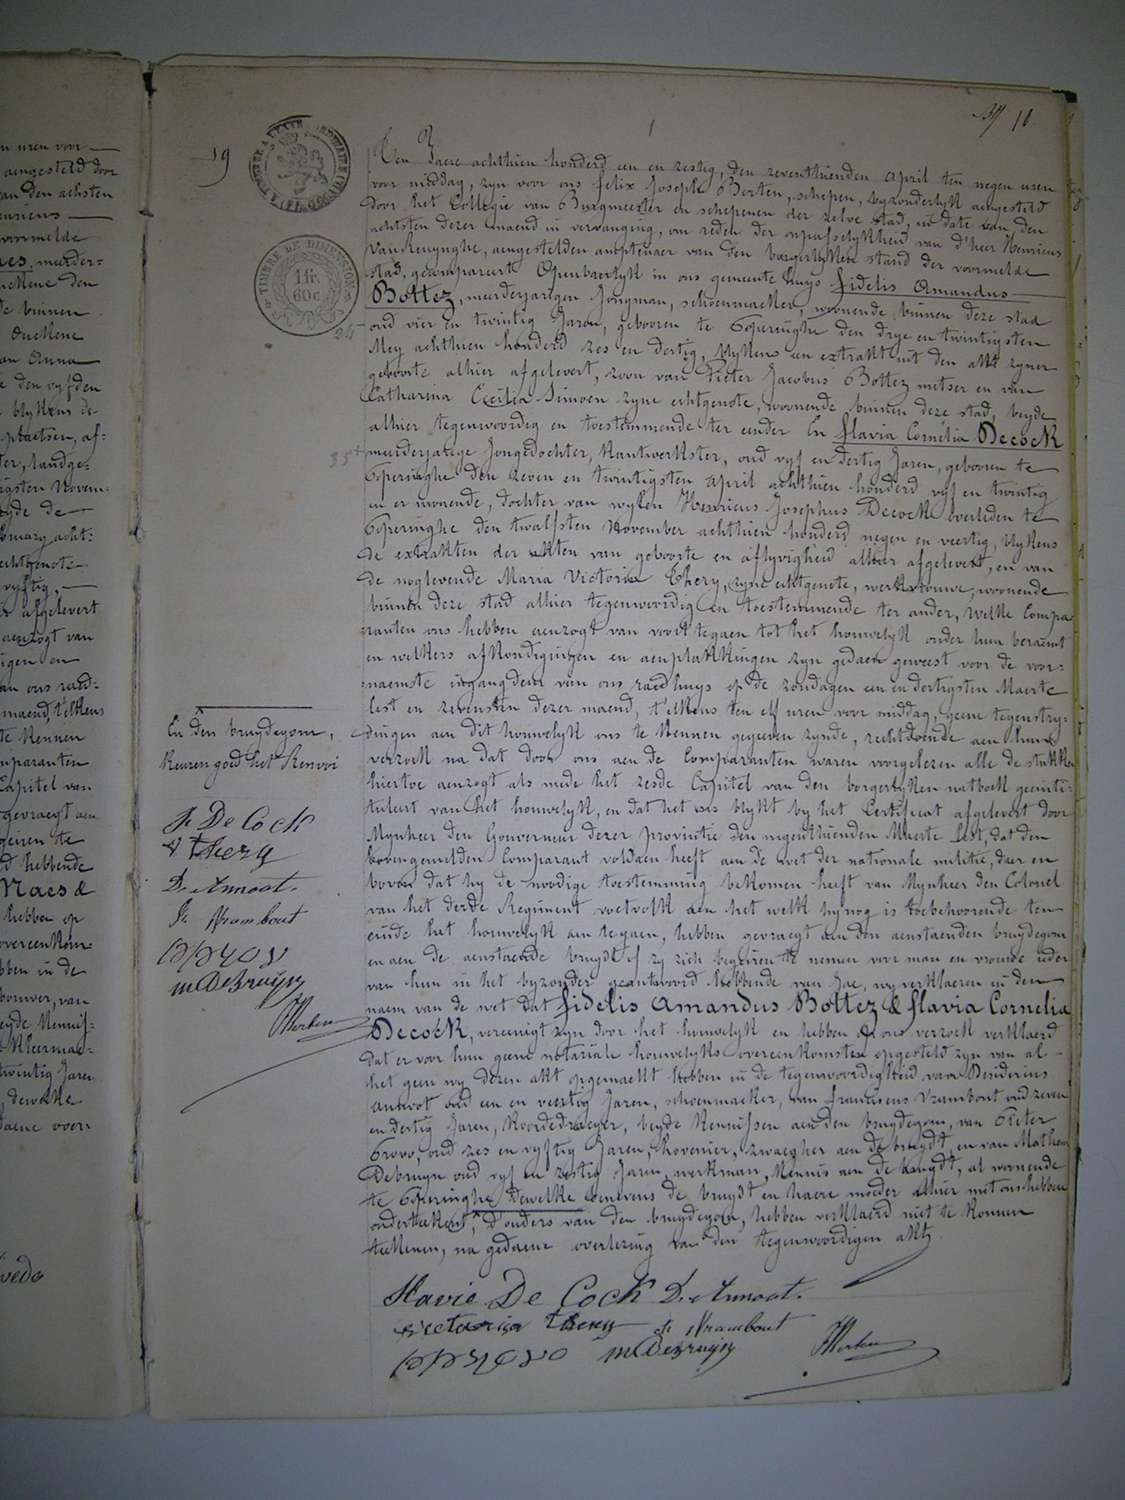 n uren voor
aengesteld door
van den achsten
voormelde
meerder-
de binnen
Ouckene
van Anna
den vyfden
blykens de
plaetsen, af-
ter, landge-
igsten Novem-
echtgenote
vyftig,
afgelevert
aenzogt van
van ons raed-
maend, t'elkens
te kennen
mparanten
Capitel van
gevraegt aen
geiren te
hebbende
Maes &
hebben op
overeenkom-
bben in de
twintig Jaren
dewelke
19
1fr.
60c.
TIMBRE DE DIMENSION
24
35
11
Den Jaere achthien honderd een en zestig, den zeventhienden April ten negen uren
voor middag, zyn voor ons Felix Joseph Berten, schepen, byzonderlyk aengesteld
door het Collegie van Burgmeester en schepenen der zelve stad, in date van den
achtsten dezer maend in vervanging, om reden der onpasselykheid van d'heer Henricus
Van Renynghe, aengestelden amptenaer van den burgerlyken stand der voormelde
stad, gecompareert Openbaerlyk in ons gemeente huys Fidelis Amandus
Bottez, meerderjarigen Jongman, schoenmaeker, woonende binnen deze stad
oud vier en twintig Jaren, gebooren te Poperinghe den drye en twintigsten
Mey achthien honderd zes en dertig, blykens een extrakt uit den akt zyner
geboorte alhier afgelevert, zoon van Pieter Jacobus Bottez metser en van
Catharina Cecilia Simoen zyne echtgenote, woonende binnen deze stad, beyde
alhier tegenwoordig en toestemmende ter eender En Flavia Cornelia Decock
meerderjarige Jongedochter, kantwerkster, oud vyf en dertig Jaren, gebooren te
Poperinghe den zeven en twintigsten April achthien honderd vyf en twintig
en er woonende, dochter van wylen Henricus Josephus Decock overleden te
Poperinghe den twalfsten November achthien honderd negen en veertig, blykens
de extrakten der akten van geboorte en aflyvigheid alhier afgelevert, en van
de noglevende Maria Victoria Thery, zyne echtgenote, werkvrouwe, woonende
binnen deze stad alhier tegenwoordig en toestemmende ter ander, welke Compa-
ranten ons hebben aenzogt van voort te gaen tot het houwelyk onder hun beraemt
en welkers afkondigingen en aenplakkingen zyn gedaen geweest voor de voor-
naemste ingangdeur van ons raedhuys op de zondagen een en dertigsten Maerte
lest en zevensten dezer maend, t'elkens ten elf uren voor middag, geene tegenstry-
dingen aen dit houwelyk ons te kennen gegeven zynde, rechtdoende aen hun
verzoek na dat door ons aen de Comparanten waren voorgelezen alle de stukken
hiertoe aenzogt als mede het zesde Capitel van den borgerlyken wetboek geinti-
tuleert van het houwelyk, en dat het ons blykt by het Certificat afgelevert door
Mynheer den Gouverneur dezer provintie den negenthienden Maerte lest, dat den
bovengemelden Comparant voldaen heeft aen de wet der nationale militie, daer en
boven dat hy de noodige toestemming bekomen heeft van Mynheer den Colonel
van het derde Regiment voetvolk aen het welk hy nog is toebehoorende ten
einde het houwelyk aen te gaen, hebben gevraegt aen den aenstaenden bruydegom
en aen de aenstaende bruydt of zy zich begeiren te nemen voor man en vrouwe ieder
van hun in het byzonder geantwoord hebbende van Jae, wy verklaeren in den
naem van de wet dat Fidelis Amandus Bottez & Flavia Cornelia
Decock, vereenigt zyn door het houwelyk en hebben op ons verzoek verklaerd
dat er voor hun geene notariale houwelyks overeenkomsten opgesteld zyn van al
het geen wy dezen akt opgemaekt hebben in de tegenwoordigheid van Desiderius
Amoot oud een en veertig Jaren, schoenmaeker, van Franciscus Vrambout oud zeven
en dertig Jaren, koordedraeyer, beyde kennissen aen den bruydegom, van Pieter
oud zes en vyftig Jaren, hovenier, zwaegher aen de bruydt, en van Matheus
Debruyn oud vyf en zestig Jaren, werkman, kennis aen de bruydt, al woonende
te Poperinghe Dewelke benevens de bruydt en haere moeder alhier met ons hebben
onderteekent, d'ouders van den bruydegom, hebben verklaerd niet te konnen
teekenen, na gedaene overlezing van den tegenwoordigen akt
En den bruydegom,
keuren goed het Renvoi
F. De Cock
V thery
D. Amoot.
fr Vrambout
m DeBruyn
FBerten
Flavie De Cock D. Amoot.
victoria thery fr Vrambout
m DeBruyn FBerten